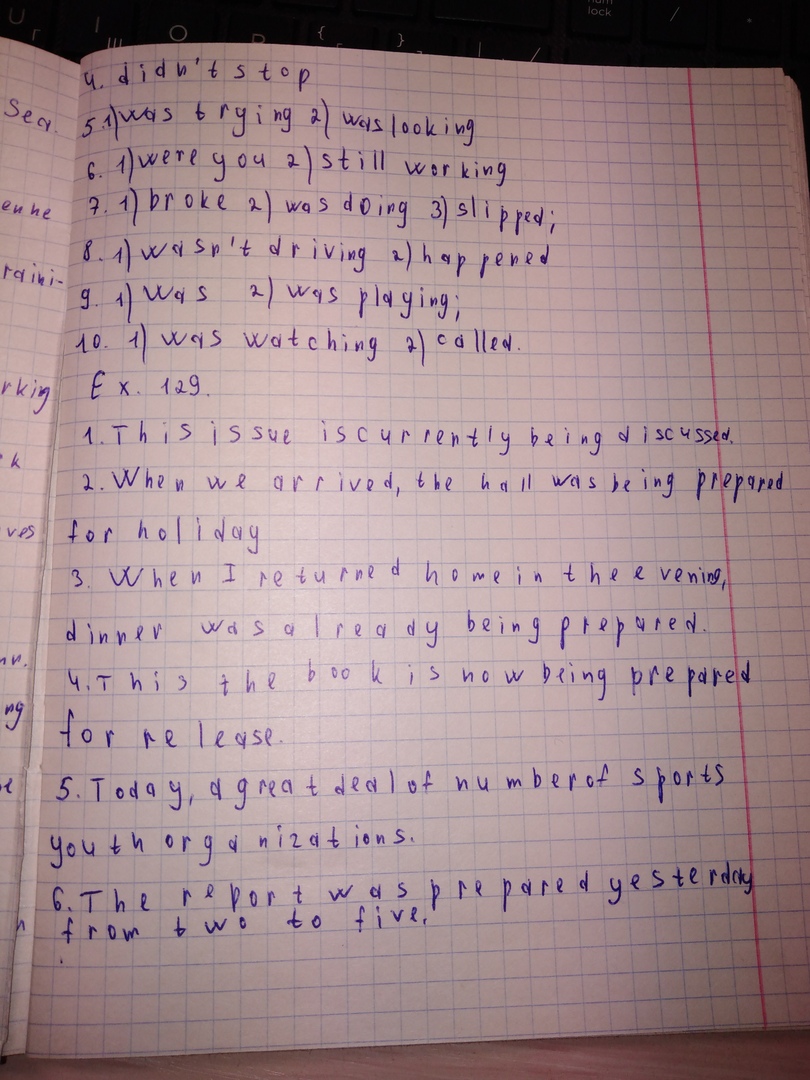 4. didn't stop
5. 1) was trying 2) was looking
6. 1) were you 2) still working
7. 1) broke 2) was doing 3) slipped;
8. 1) wasn't driving 2) happened
9. 1) was 2) was playing;
10. 1) was watching 2) called.
Ex. 129.
1. This issue is currently being discussed.
2. When we arrived, the hall was being prepared
for holiday
3. When I returned home in the evening,
dinner was already being prepared.
4. This the book is now being prepared
for release.
5. Today, a great deal of number of sports
youth organizations.
6. The report was prepared yesterday
from two to five.
Sea.
rking
ves
ng
num
lock